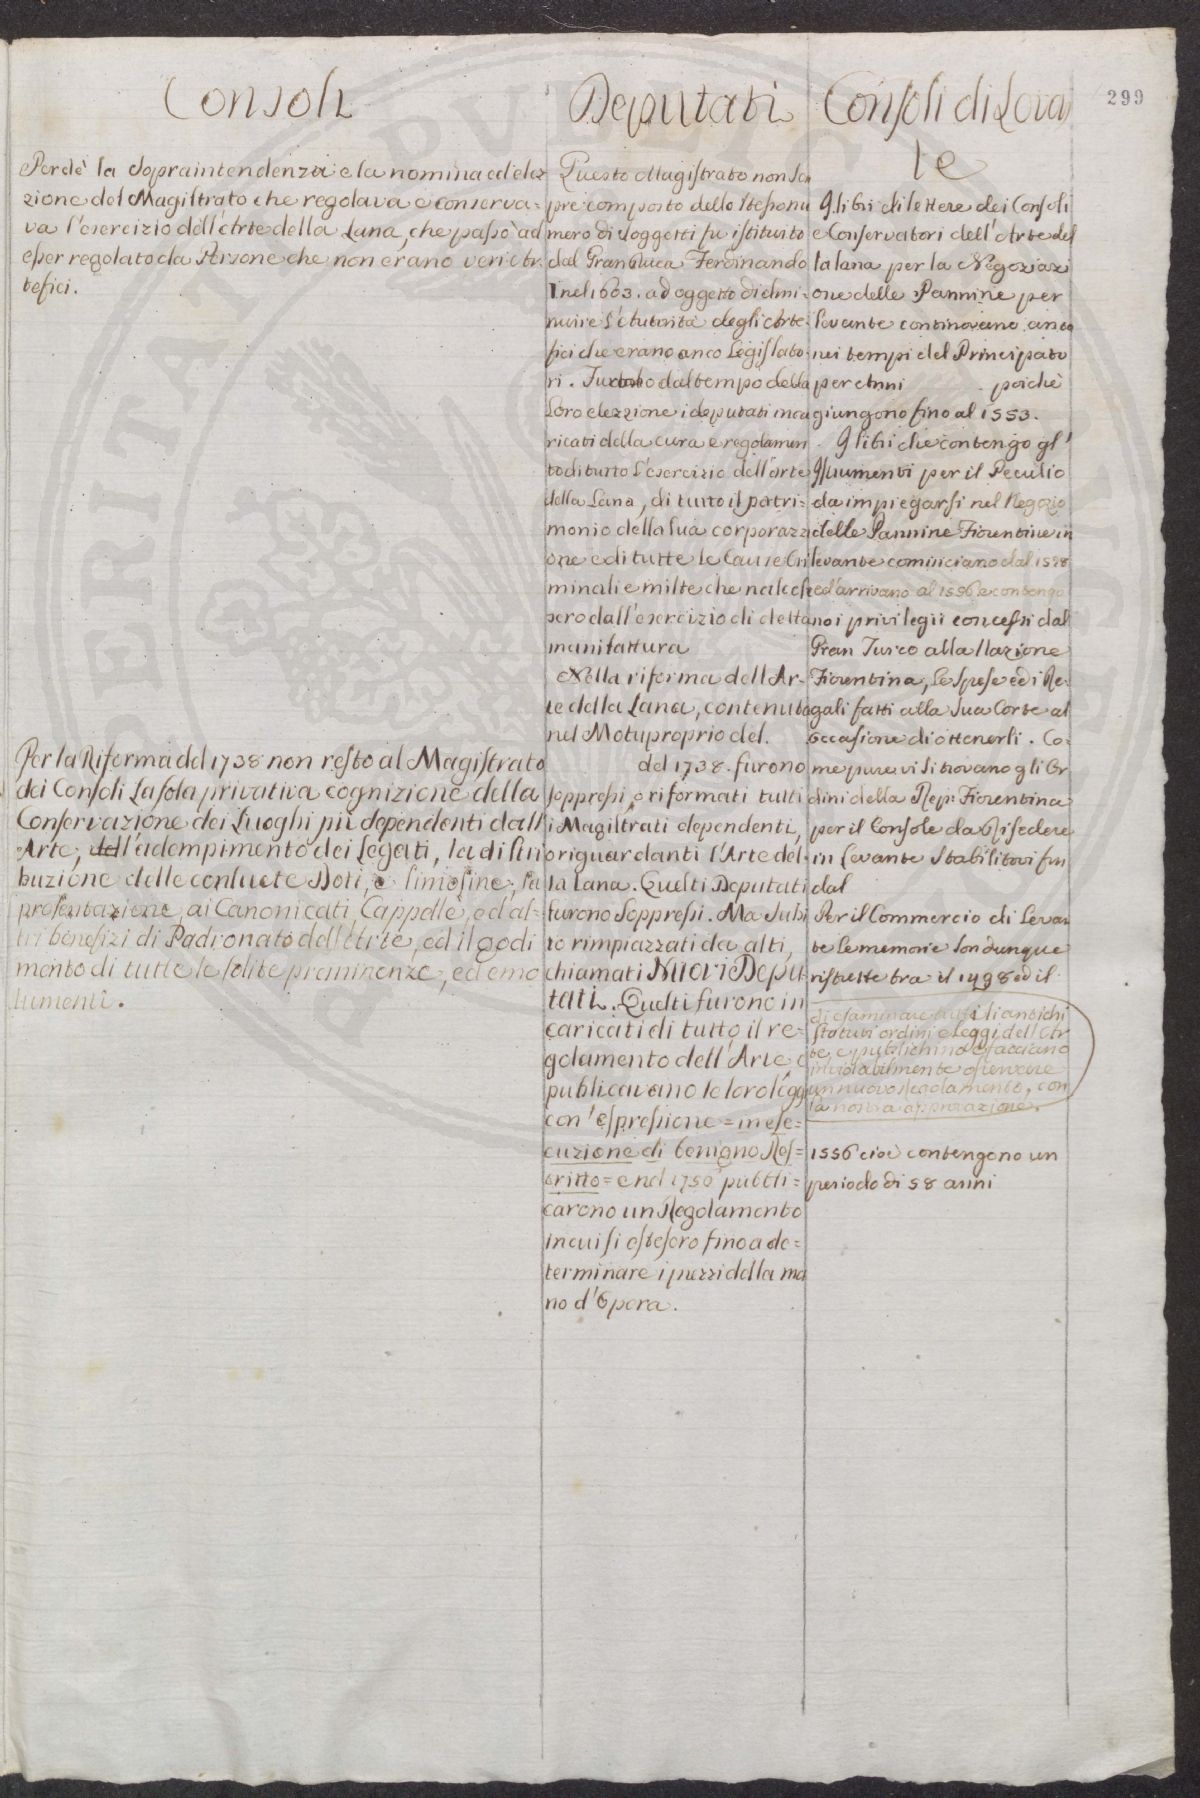 299
Consoli
Perdè la Sopraintendenza e la nomina ed elez
zione del Magistrato che regolava e conserva=
va l'esercizio dell'Arte della Lana, che passò ad
esser regolato da Persone che non erano veri Ar
tefici.
Per la Riforma del 1738 non restò al Magistrato
dei Consoli La sola privativa cognizione della
Conservazione dei Luoghi pii dependenti dall'
Arte, dell'adempimento dei Legati, la distri
buzione delle consuete Doti, e limosine, la
presentazione, ai Canonicati, Cappelle, ed al=
tri benefizi di Padronato dell'Arte, ed il godi
mento di tutte le solite preminenze, ed emo
lumenti.
Deputati
Questo Magistrato non sem
pre composto dello stesso nu
mero di soggetti fu istituito
dal Granduca Ferdinando
I nel 1603. ad oggetto di dimi=
nuire l'Autorità degli Arte
fici che erano anco Legislato
ri. Furono dal tempo della
Loro elezzione i deputati inca
ricati della cura e regolamen
to di tutto l'esercizio dell'Arte
della Lana, di tutto il patri=
monio della sua corporazzi
one e di tutte le Cause Cri
minali e miste che nasces
sero dall'esercizio di detta
manifattura
Nella riforma dell'Ar=
te della Lana, contenuta
nel Motuproprio del.
del 1738. furono
soppressi, o riformati tutti
i Magistrati dependenti,
o riguardanti l'Arte del=
la Lana. Questi Deputati
furono Soppressi. Ma Subi
to rimpiazzati da altri,
chiamati Nuovi Depu
tati. Questi furono in
caricati di tutto il re=
golamento dell'Arte, e
publicavano le loro legg
con l'espressione = in ese=
cuzione di benigno Res=
critto = e nel 1750 pubbli=
carono un Regolamento
in cui si estesero fino a de=
terminare i prezzi della ma
no d'Opera.
Consoli di Leva
te
I libri di lettere dei Consoli
e Conservatori dell'Arte del
la lana per la Negoziazi
one delle Pannine per
levante continovano anco
nei tempi del Principato
per Anni poichè
giungono fino al 1553.
I libri che contengo gl'
Istrumenti per il Peculio
da impiegarsi nel Negozio
delle Pannine Fiorentine in
levante cominciano dal 1528
ed arrivano al 1556 e contengo
no i privilegii concessi dal
Gran Turco alla Nazione
Fiorentina, le Spese ed i Re=
gali fatti alla Sua Corte al
occasione di ottenerli. Co=
me pure vi si trovano gli Or
dini della Rep: Fiorentina
per il Console da Risedere
in Levante Stabilitovi fin
dal
Per il Commercio di Levan
te le memorie son dunque
ristrette tra il 1498 ed il
di esaminare tutti li antichi
Statuti ordini e leggi dell'Ar
te, e pubblichino e facciano
inviolabilmente osservare
un nuovo Regolamento, con
la nostra approvazione.
1556 cioè contengono un
periodo di 58 anni